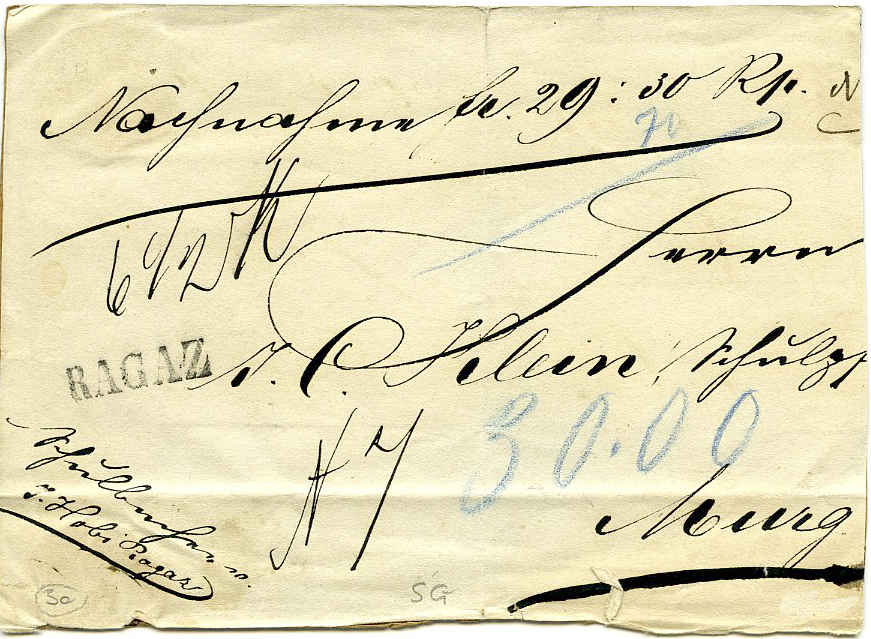 Nachnahme fr. 29:30 Rp. N
70
6 1/2
Herrn
RAGAZ
J. C. Klein, Schulpf
30.00
N 7
Murg
Schulbücher v.
J. Hobi Ragaz
30
SG